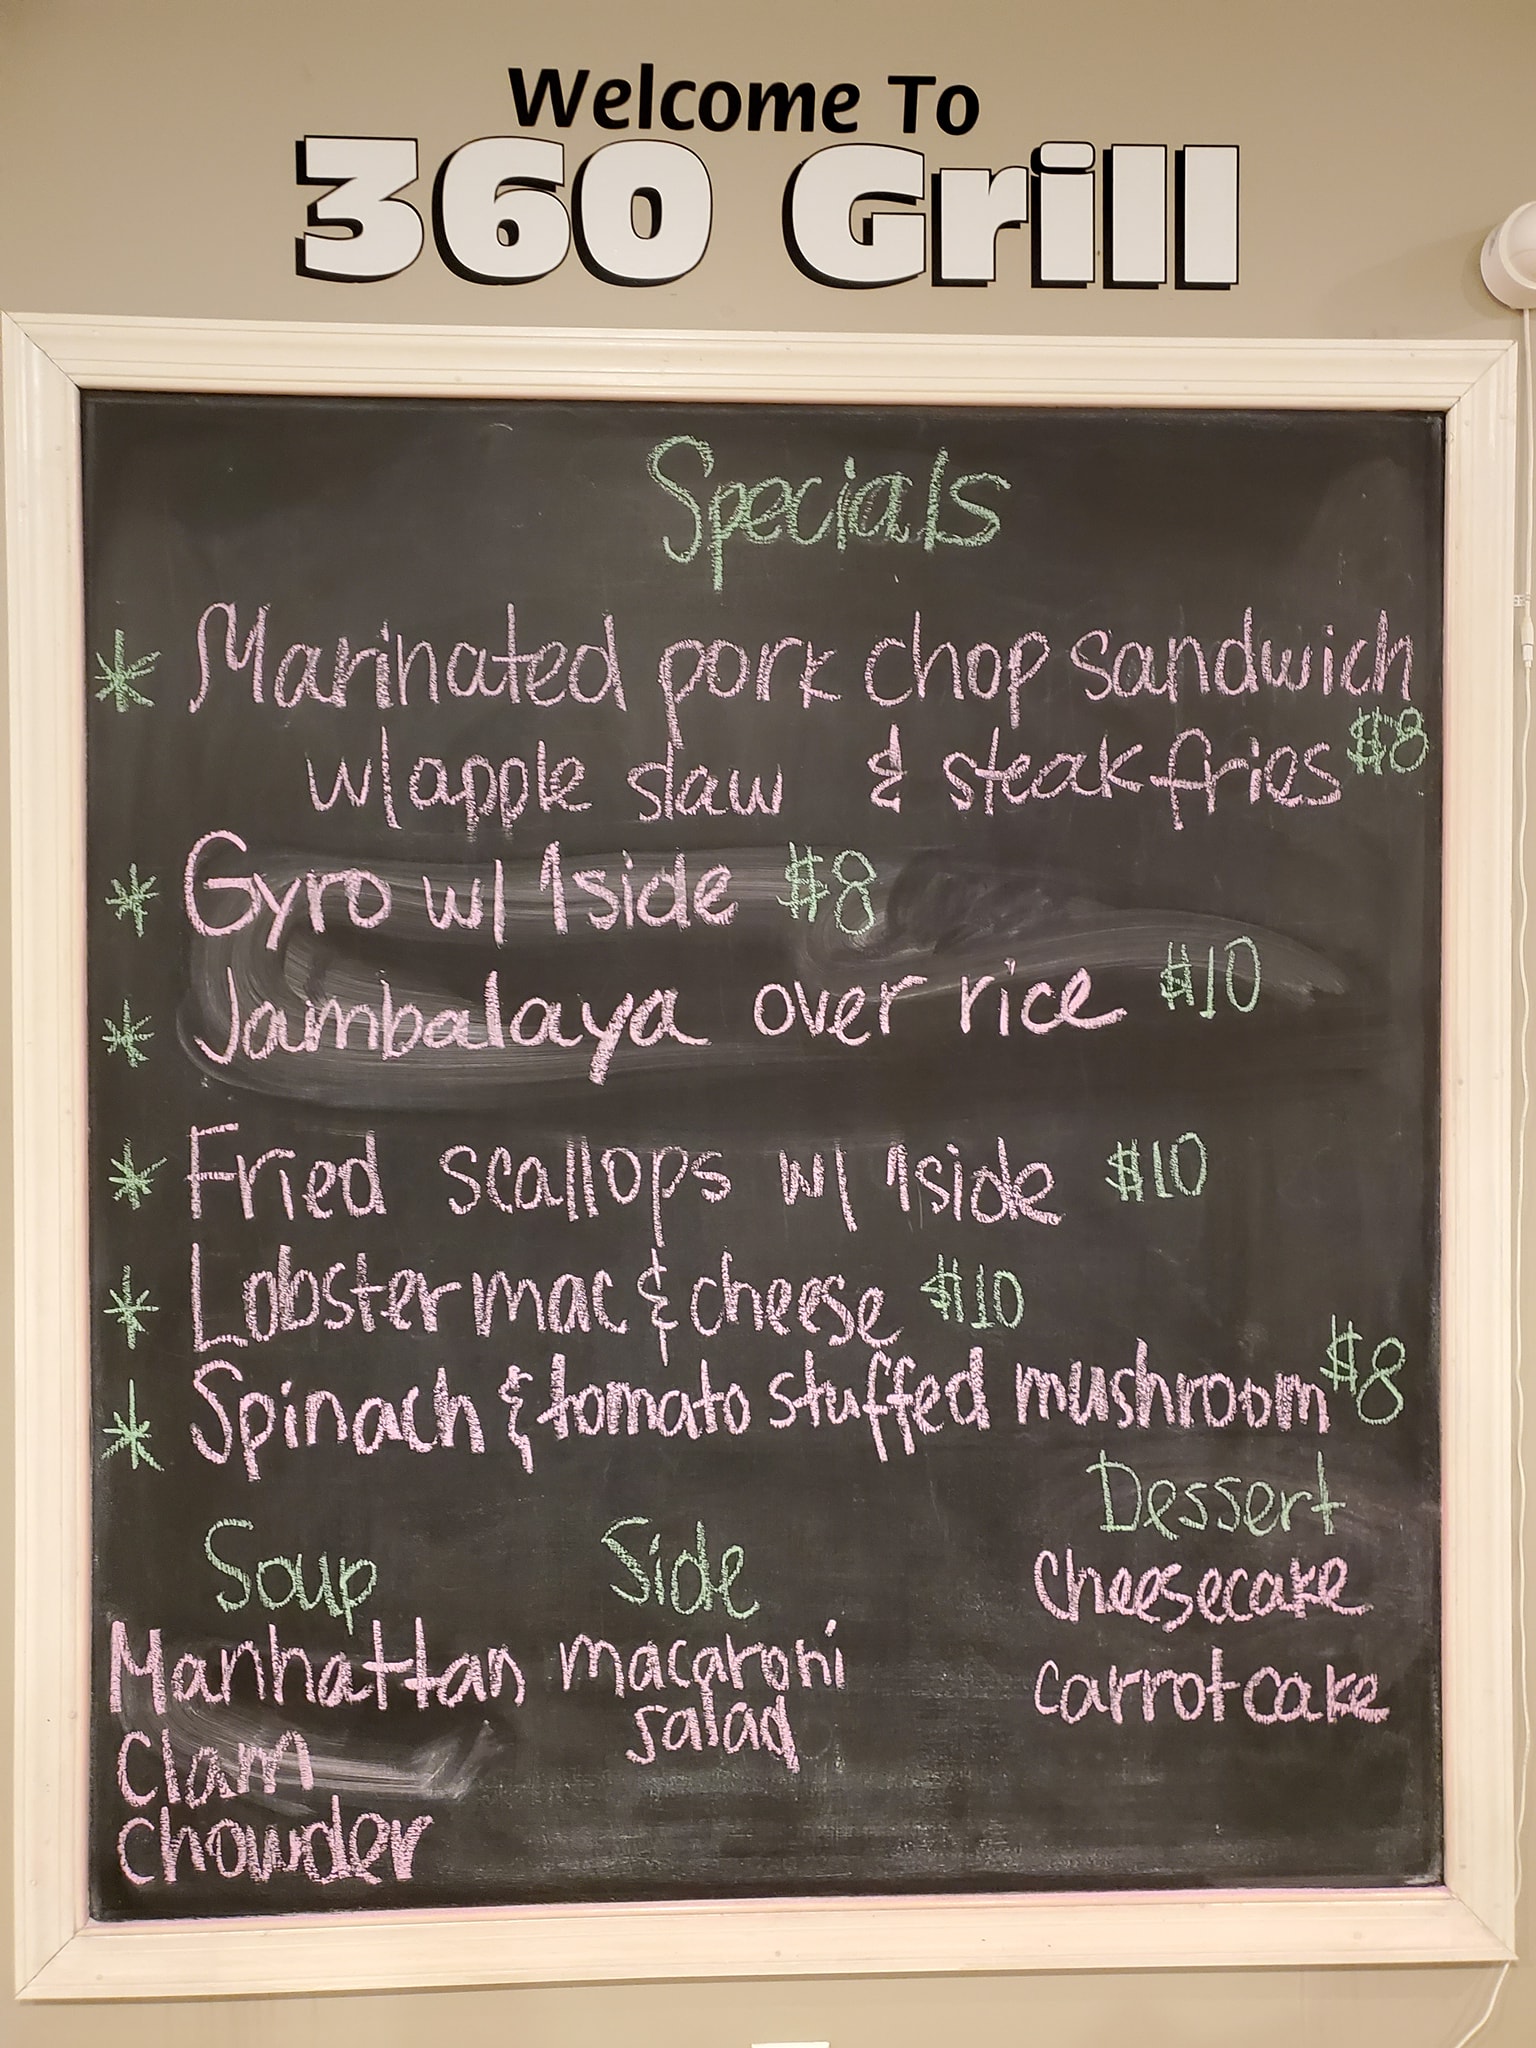 Welcome To
360 Grill
Specials
* Marinated pork chop sandwich
w/apple slaw & steak fries $8
* Gyro w/ 1 side $8
* Jambalaya over rice $10
* Fried scallops w/ 1 side $10
* Lobster mac & cheese $10
* Spinach & tomato stuffed mushroom $8
Soup
Manhattan
Clam
Chowder
Side
macaroni
salad
Dessert
Cheesecake
carrot cake